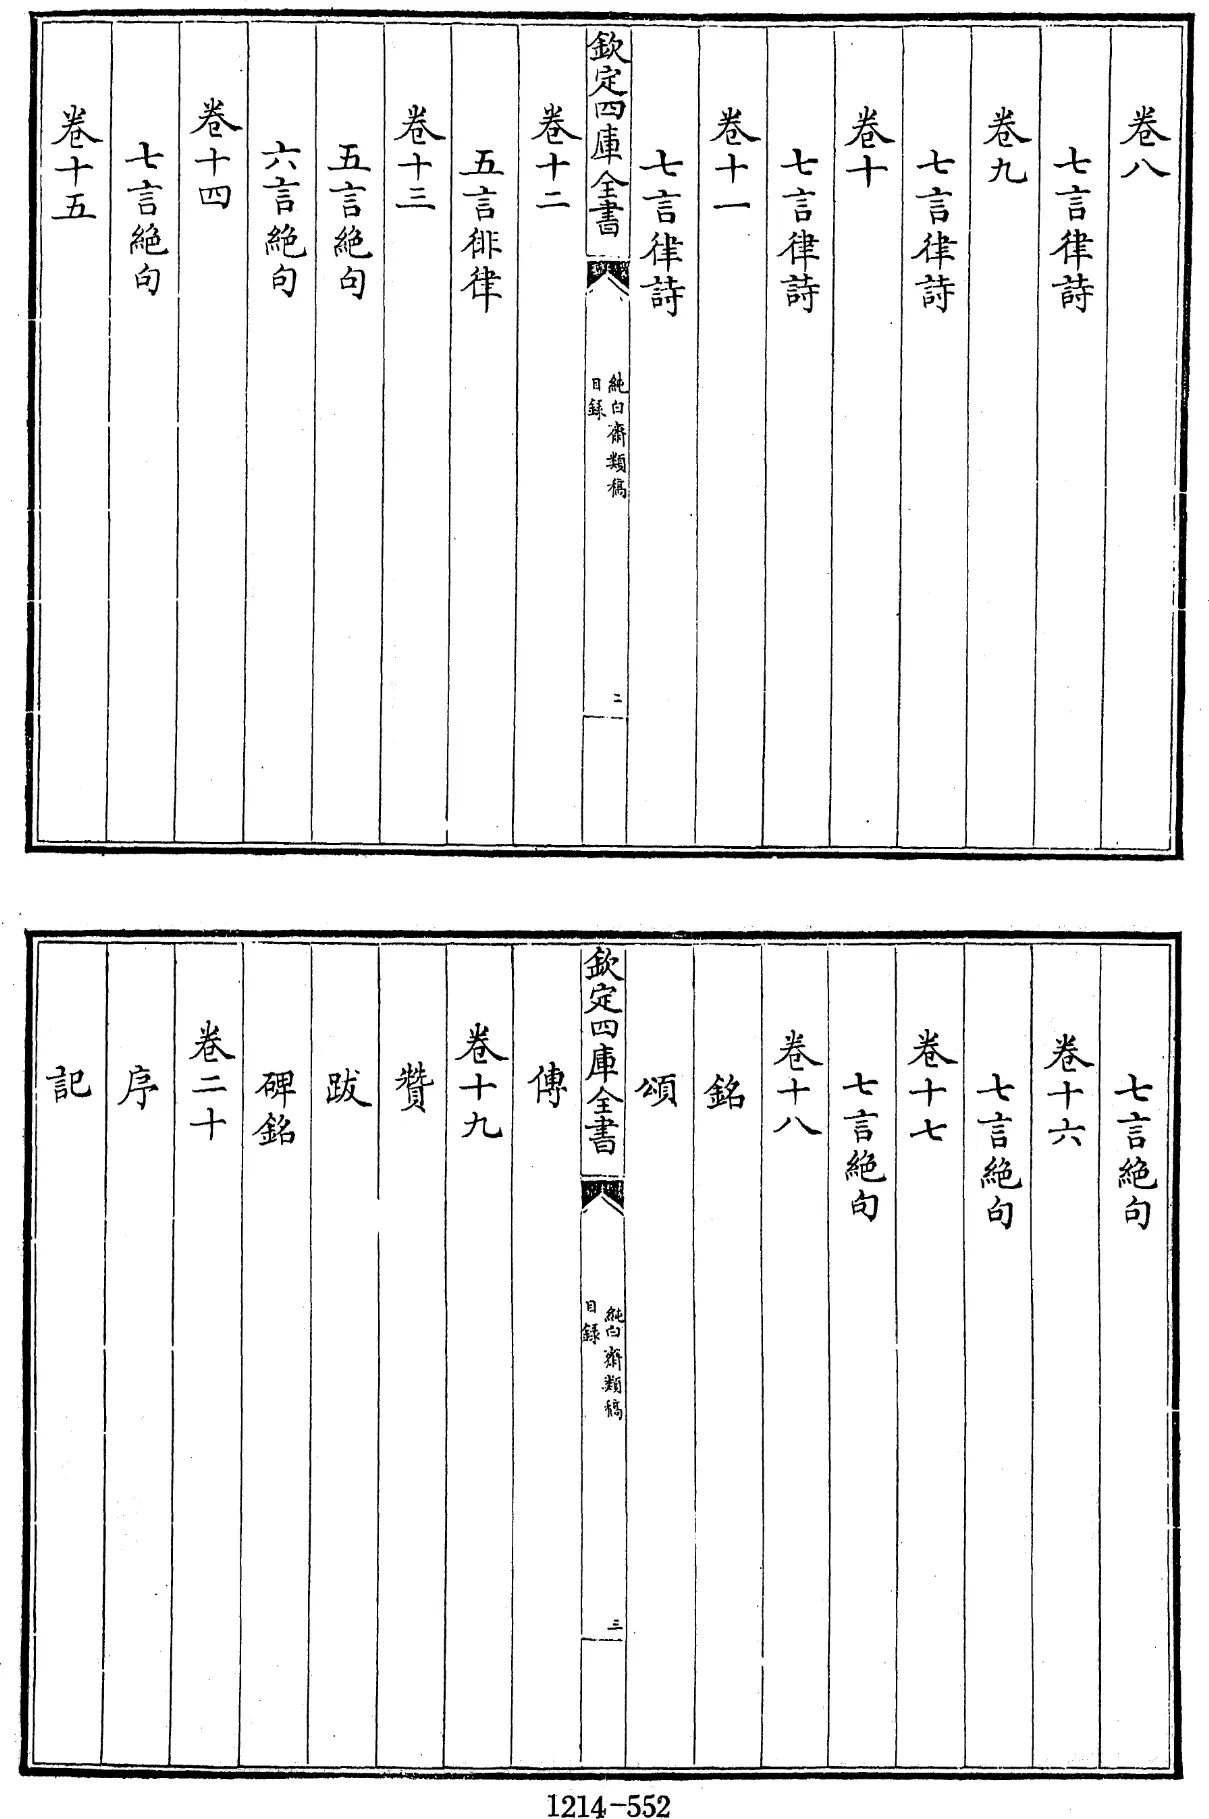 卷八
七言律詩
卷九
七言律詩
卷十
七言律詩
卷十一
七言律詩
欽定四庫全書
純白齋類稿
目録
二
卷十二
五言徘律
卷十三
五言絶句
六言絶句
卷十四
七言絶句
卷十五
七言絶句
卷十六
七言絶句
卷十七
七言絶句
卷十八
銘
頌
欽定四庫全書
純白齋類稿
目録
三
傳
卷十九
贊
跋
碑銘
卷二十
序
記
1214-552